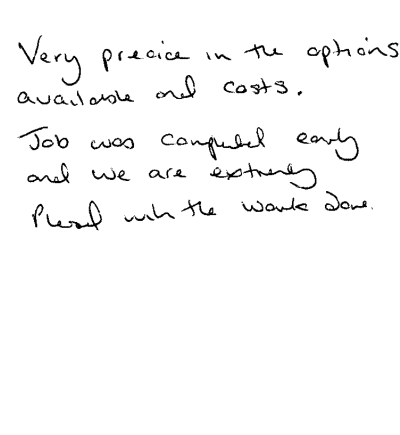 Very precice in the options
available and costs.
Job was completed early
and we are extremely
Pleased with the work done.